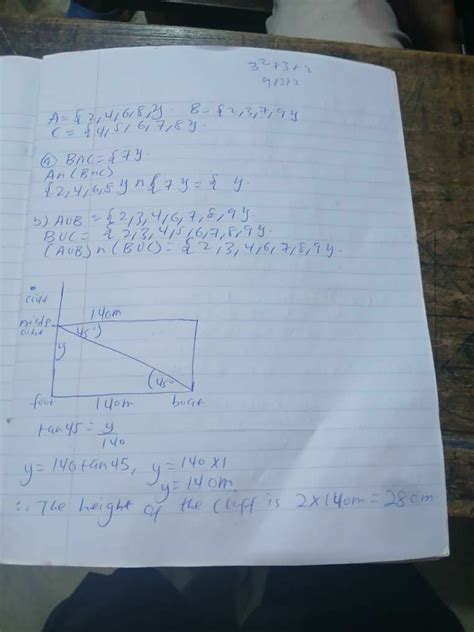 3²+3+2
9+3+2
A = {2,4,6,8,} B = {2,3,7,9}
C = {4,5,6,7,8}
(a) B∩C = {7}
A∩(B∩C)
{2,4,6,8} ∩ {7} = { }
b) A∪B = {2,3,4,6,7,8,9}
B∪C = {2,3,4,5,6,7,8,9}
(A∪B) ∩ (B∪C) = {2,3,4,6,7,8,9}
140m
45°
y
45°
foot 140m boat
tan45 = y/140
y = 140tan45, y = 140x1
y = 140m
∴ The height of the cliff is 2x140m = 280m